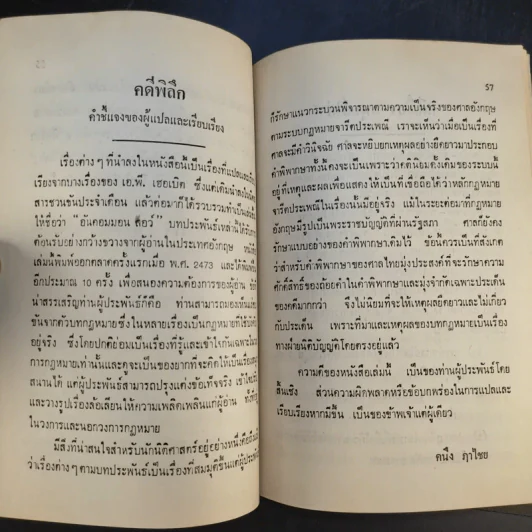 คดีพิลึก
คำชี้แจงของผู้แปลและเรียบเรียง
เรื่องต่าง ๆ ที่นำลงในหนังสือนี้เป็นเรื่องที่แปลและ
เรื่องจากบางเรื่องของ เอ.พี. เฮอเบิต ซึ่งแต่เดิมนำลงใน
สารชวนขันประจำเดือน แล้วต่อมาก็ได้รวบรวมทำเป็น
ให้ชื่อว่า “อันคอมมอน ลอว์” บทประพันธ์เหล่านี้ได้รับ
ต้อนรับอย่างกว้างขวางจากผู้อ่านในประเทศอังกฤษ หนังสือ
เล่มนี้พิมพ์ออกตลาดครั้งแรกเมื่อ พ.ศ. 2473 และได้พิมพ์
อีกประมาณ 10 ครั้ง เพื่อสนองความต้องการของผู้อ่าน
น่าสรรเสริญท่านผู้ประพันธ์ก็คือ ท่านสามารถมองเห็น
ขันจากตัวบทกฎหมายซึ่งในหลายเรื่องเป็นกฎหมายที่ใช้
อยู่จริง ซึ่งโดยปกติย่อมเป็นเรื่องที่รู้และเข้าใจกันเฉพาะ
การกฎหมายเท่านั้นและดูจะเป็นของยากที่จะคิดให้เป็นเรื่อง
สนานได้ แต่ผู้ประพันธ์สามารถปรุงแต่งข้อเท็จจริง
และวางรูปเรื่องล้อเลียนให้ความเพลิดเพลินแก่ผู้อ่าน
ในวงการและนอกวงการกฎหมาย
มีสิ่งที่น่าสนใจสำหรับนักนิติศาสตร์อยู่อย่างหนึ่ง
ว่าเรื่องต่าง ๆ ตามบทประพันธ์เป็นเรื่องที่สมมุติขึ้นแต่ผู้ประพันธ์
57
ก็รักษาแนวกระบวนพิจารณาตามความเป็นจริงของศาลอังกฤษ
ตามระบบกฎหมายจารีตประเพณี เราจะเห็นว่าเมื่อเป็นเรื่องที่
ศาลจะมีคำวินิจฉัย ศาลจะหยิบยกเหตุผลอย่างยืดยาวมาประกอบ
คำพิพากษาทั้งนี้คงจะเป็นเพราะว่าคตินิยมดั้งเดิมของระบบนี้
อยู่ที่เหตุและผลเพื่อแสดงให้เป็นที่เชื่อถือได้ว่าหลักกฎหมาย
จารีตประเพณีในเรื่องนั้นมีอยู่จริง แม้ในระยะต่อมากฎหมาย
อังกฤษมีรูปเป็นพระราชบัญญัติที่ผ่านรัฐสภา ศาลก็ยังคง
รักษาแบบอย่างของคำพิพากษาเดิมไว้ ข้อนี้ควรเป็นที่สังเกต
ว่าสำหรับคำพิพากษาของศาลไทยมุ่งประสงค์ที่จะรักษาความ
ศักดิ์สิทธิ์ของถ้อยคำในคำพิพากษาและมุ่งจำกัดเฉพาะประเด็น
ของคดีมากกว่า จึงไม่นิยมที่จะให้เหตุผลยืดยาวและไม่เกี่ยว
กับประเด็น เพราะที่มาและเหตุผลของบทกฎหมายเป็นเรื่อง
ทางฝ่ายนิติบัญญัติโดยตรงอยู่แล้ว
ความดีของหนังสือเล่มนี้ เป็นของท่านผู้ประพันธ์โดย
สิ้นเชิง ส่วนความผิดพลาดหรือข้อบกพร่องในการแปลและ
เรียบเรียงหากมีขึ้น เป็นของข้าพเจ้าแต่ผู้เดียว
คนึง ฦาไชย